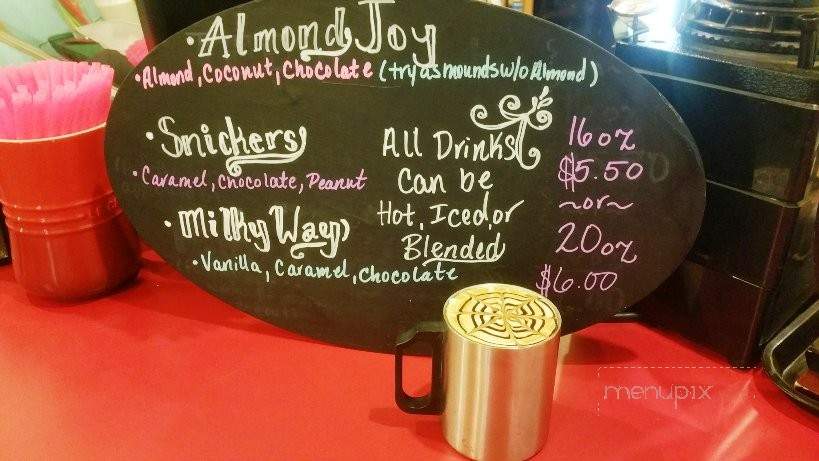 • Almond Joy
• Almond, Coconut, Chocolate (try as mounds w/o Almond)
• Snickers
• Caramel, Chocolate, Peanut
• Milky Way
• Vanilla, Caramel, Chocolate
All Drinks
Can be
Hot, Iced, or
Blended
16oz
$5.50
~or~
20oz
$6.00
menupix